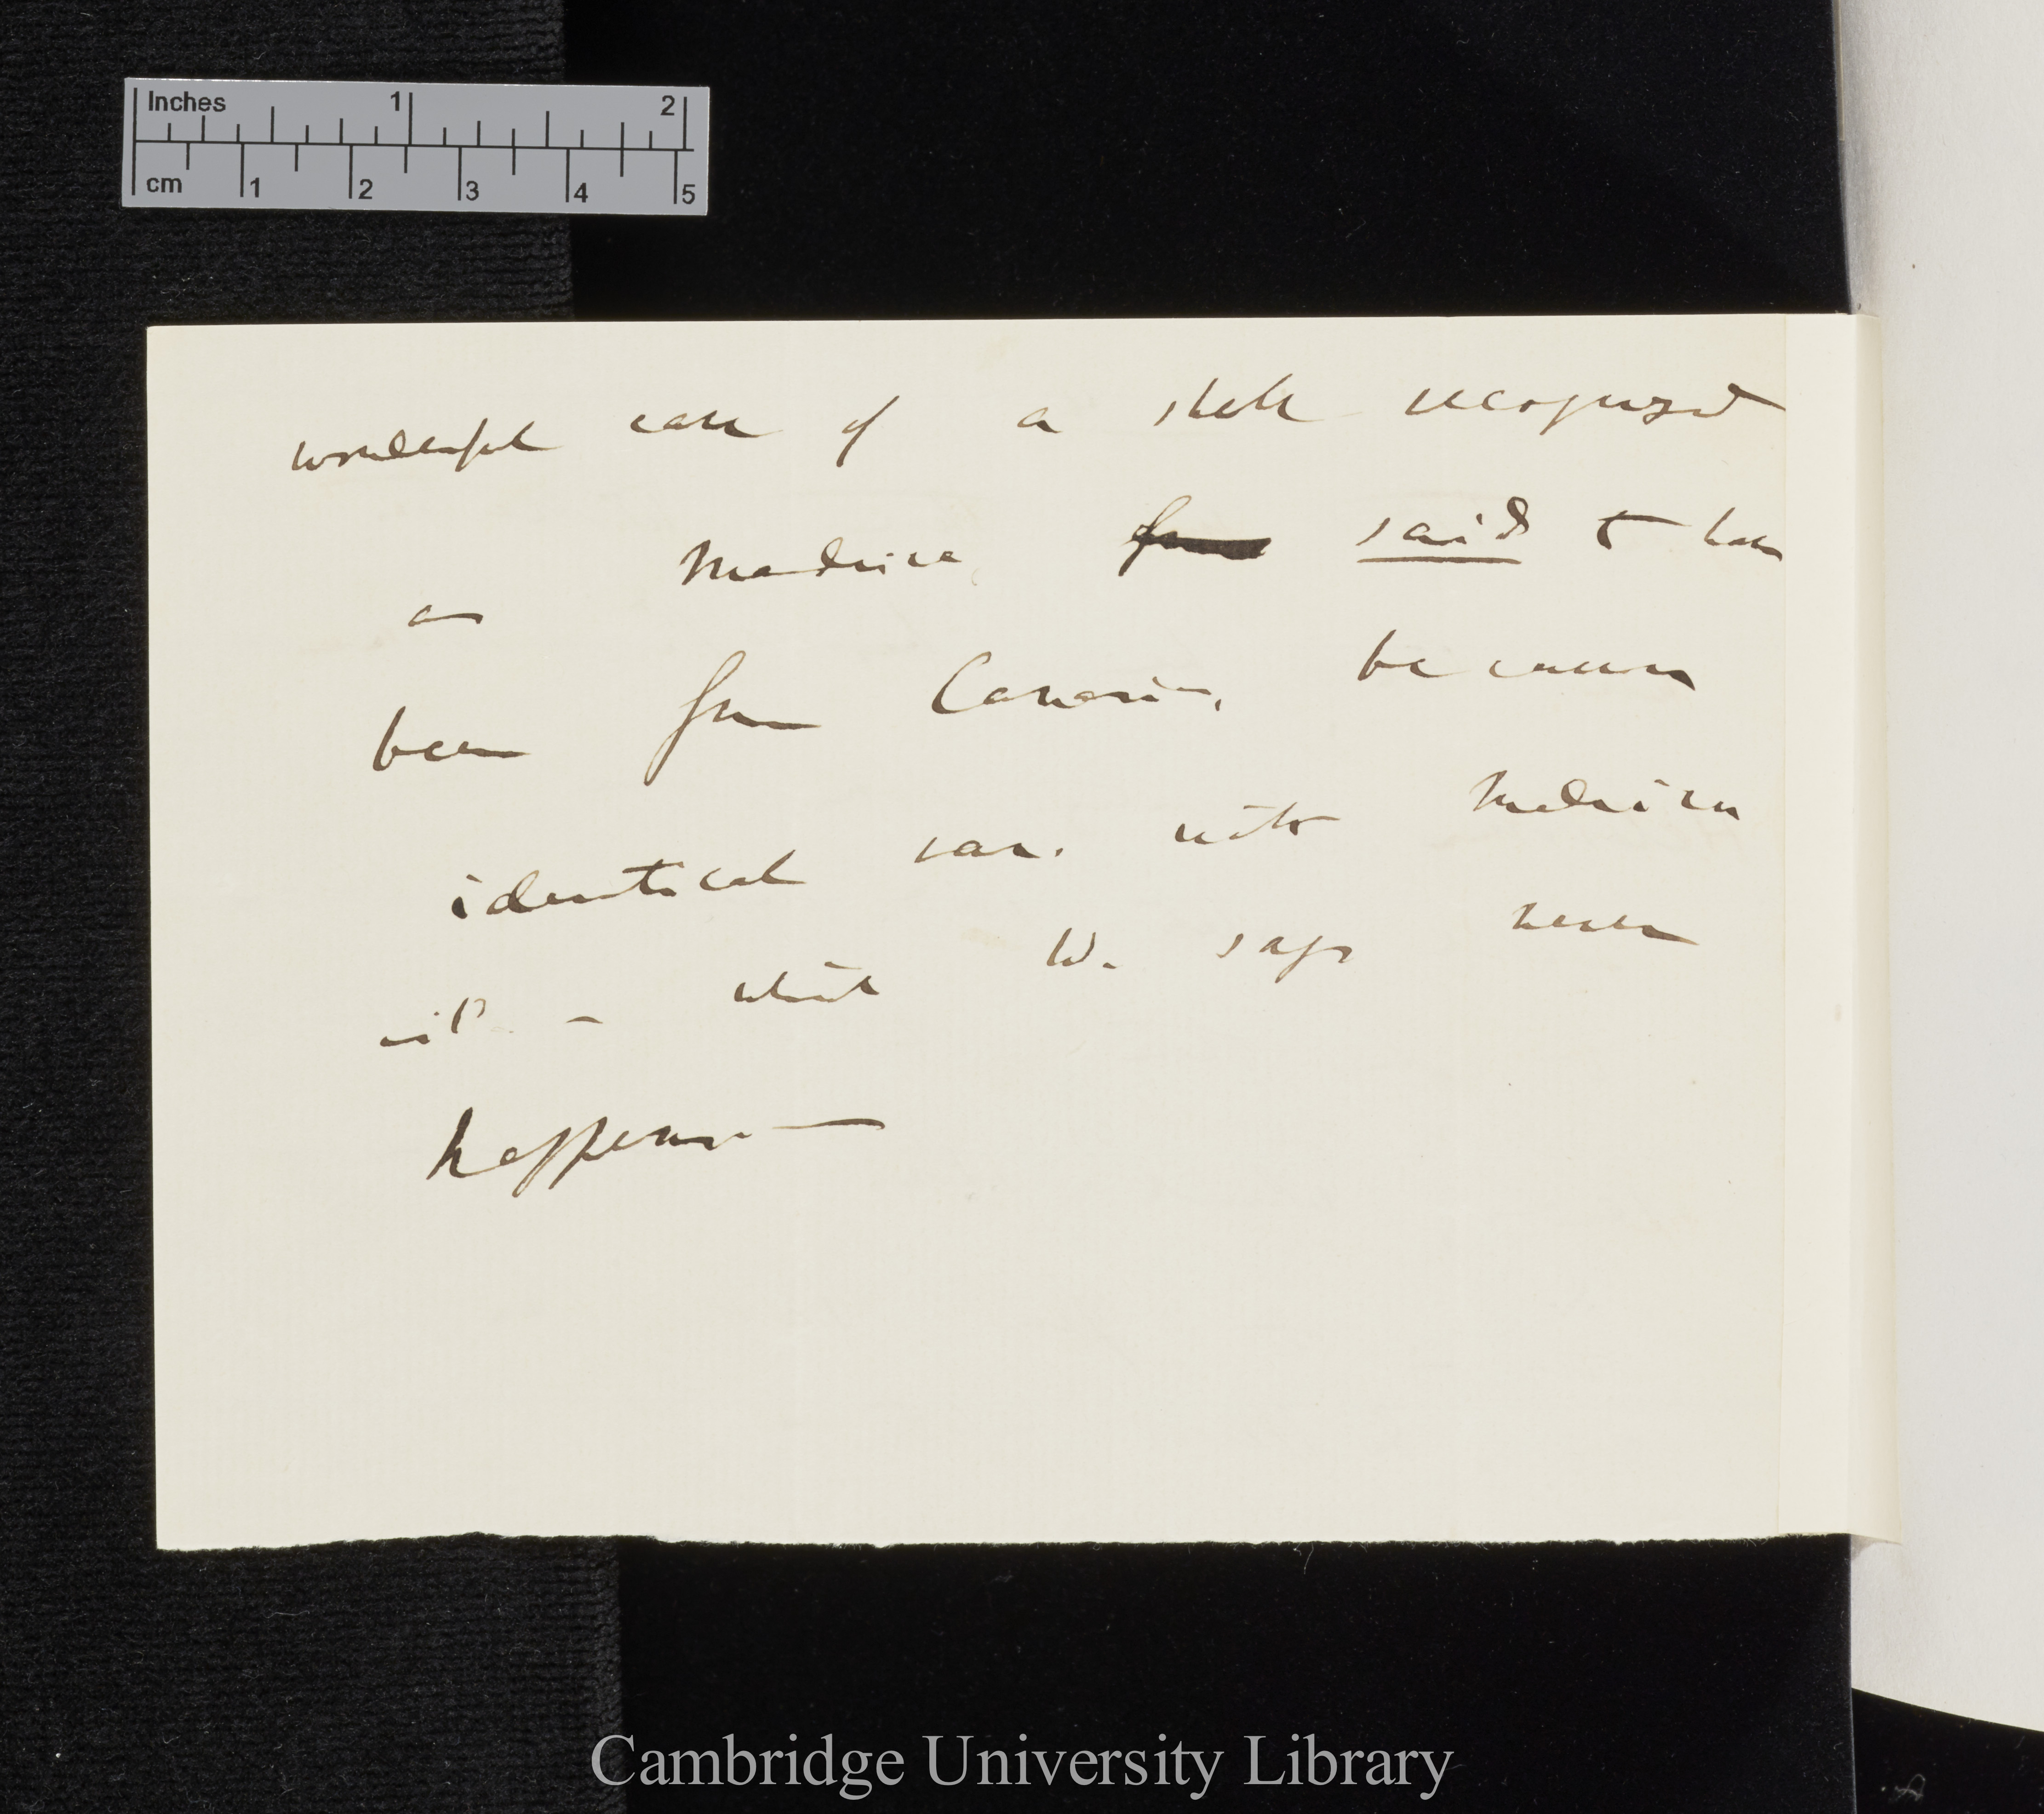 Inches 1 2
cm 1 2 3 4 5
wonderful case of a shell recognised
as Madeira, from said to have
been from Canaries, because
identical var. with Madeira
- which W. says never
happens —
Cambridge University Library